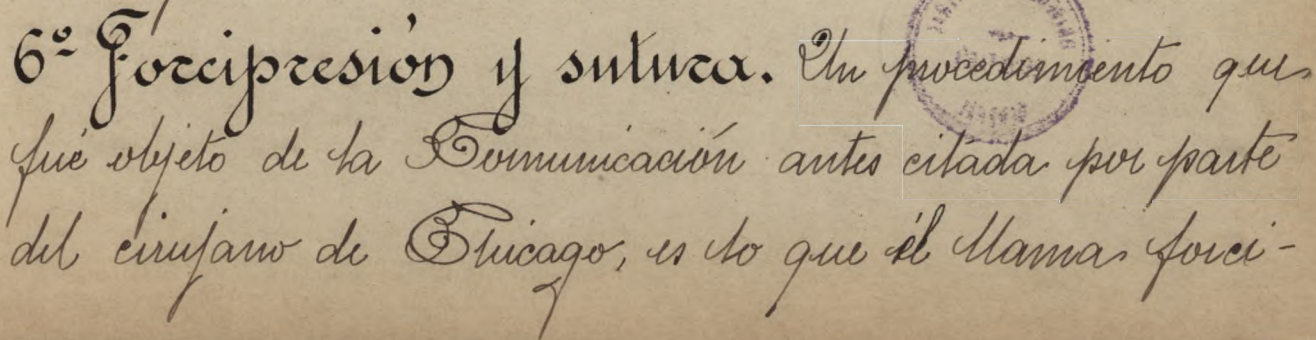 6º Forcipresión y sutura. Un procedimiento que
fué objeto de la Comunicación antes citada por parte
del cirujano de Chicago, es lo que él llama forci-